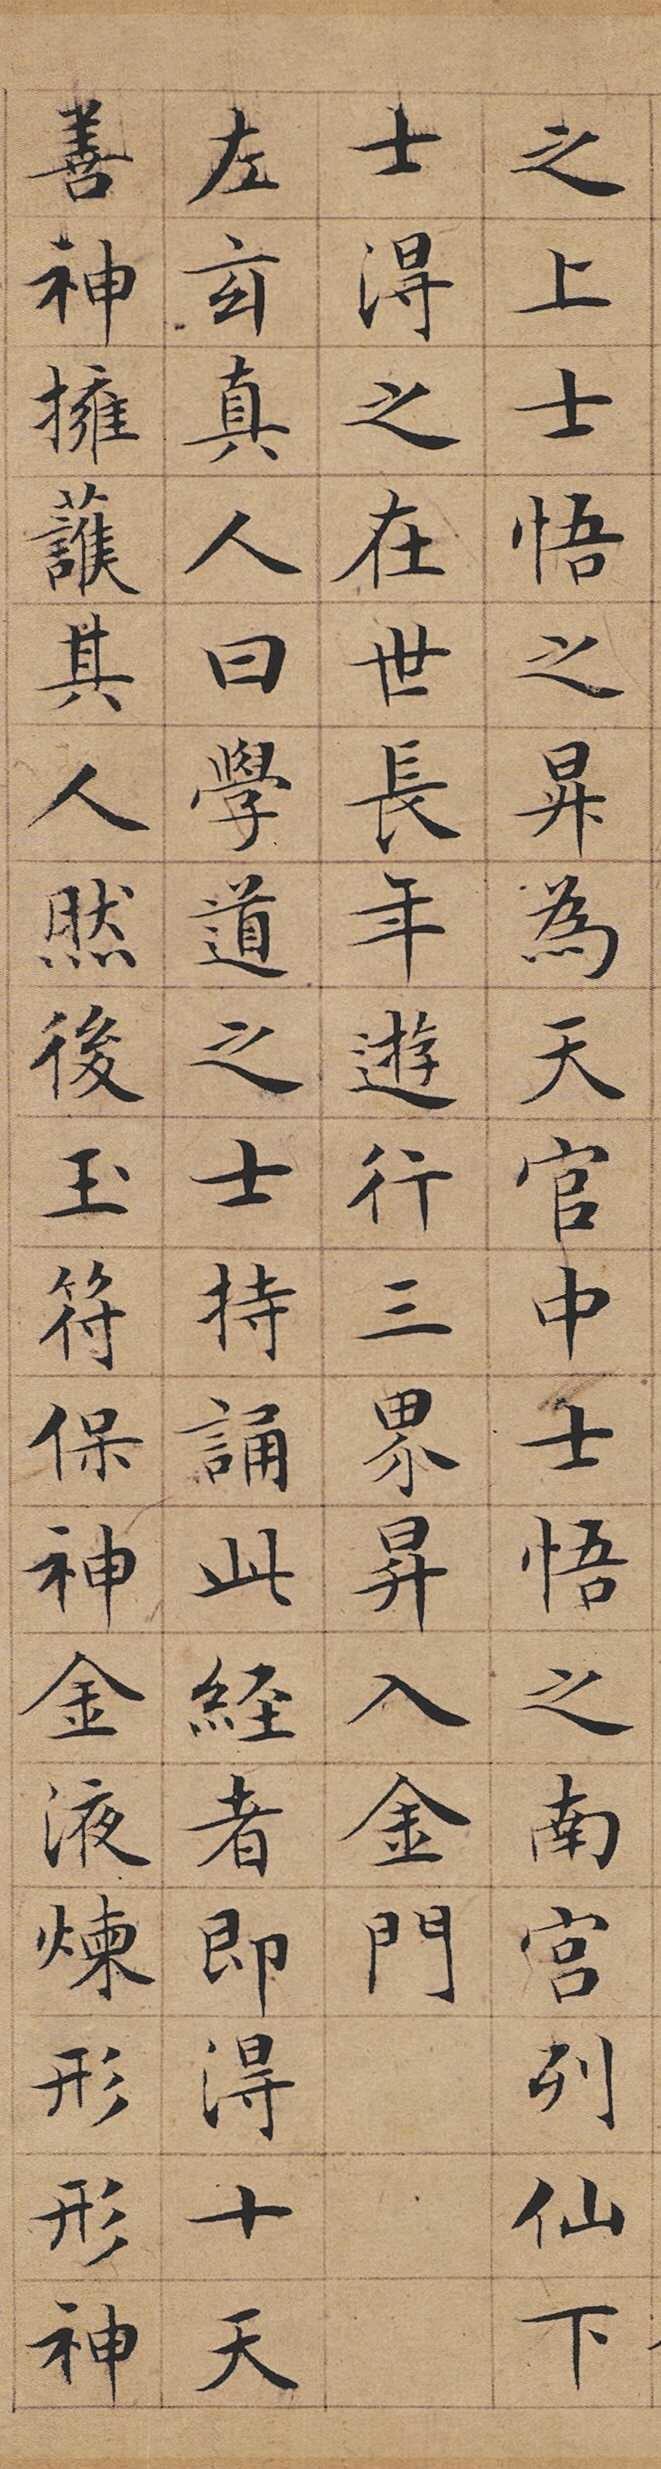 之上士悟之昇為天官中士悟之南宮列仙下
士得之在世長年遊行三界昇入金門
左玄真人曰學道之士持誦此經者即得十天
善神擁護其人然後玉符保神金液煉形形神